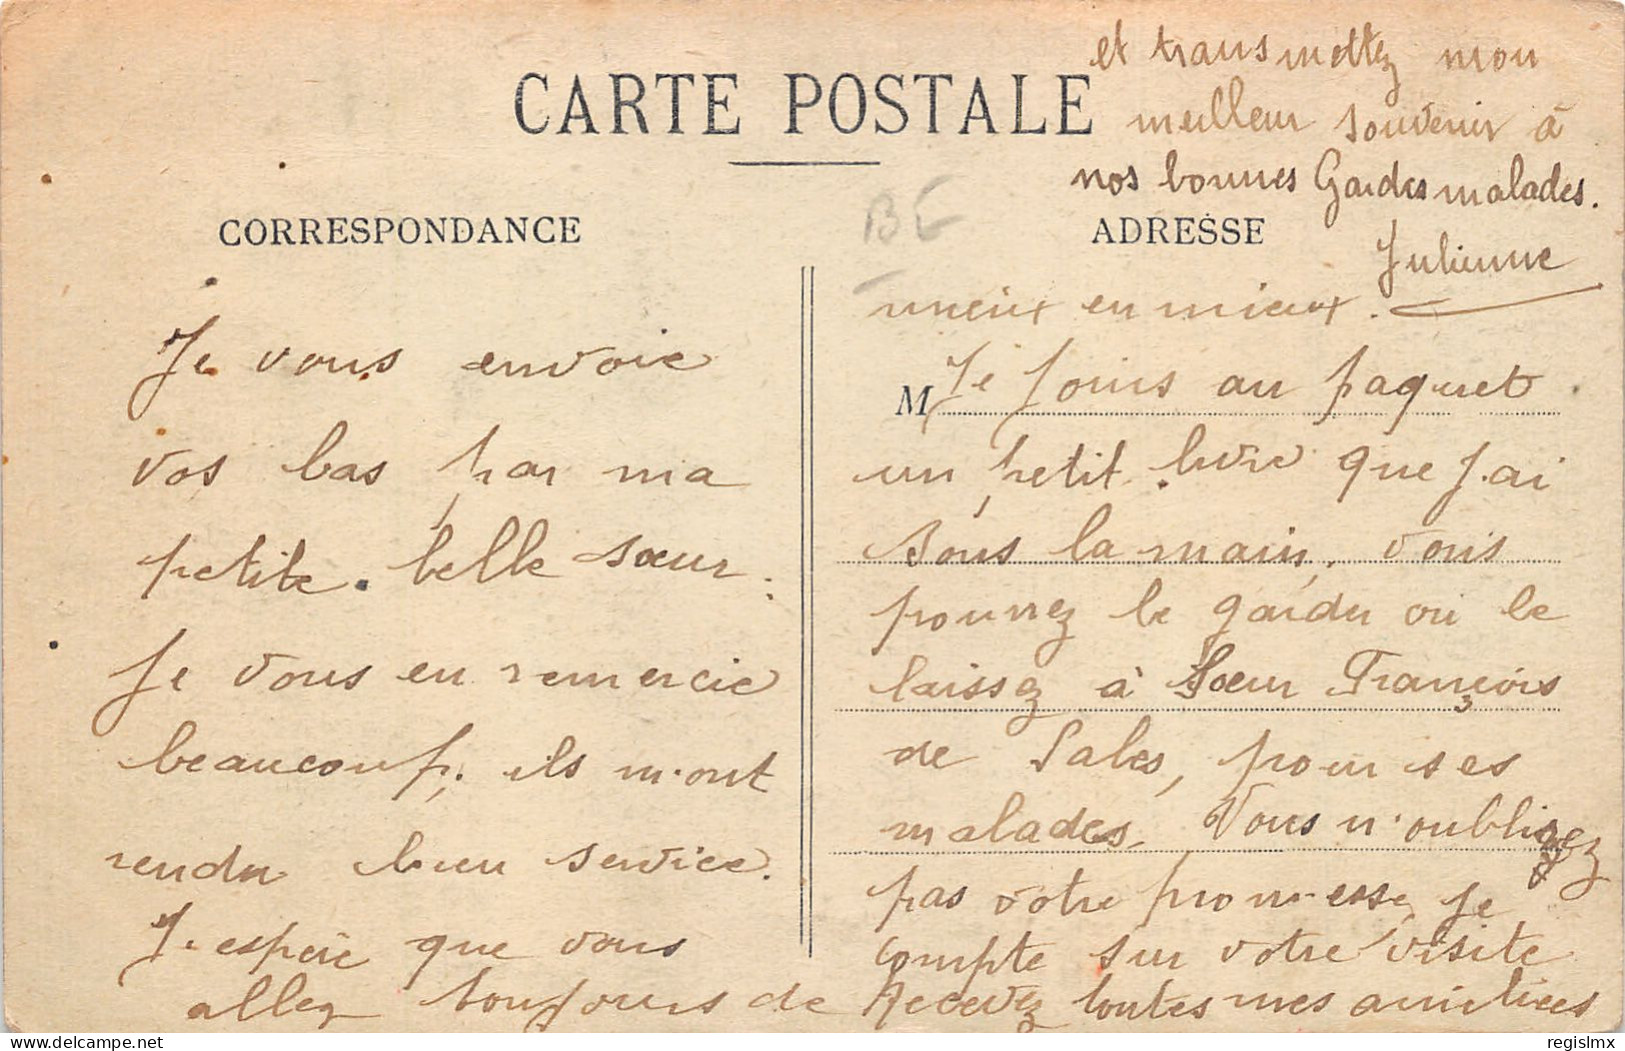 CARTE POSTALE
CORRESPONDANCE
BE
ADRESSE
Je vous envoie
vos bas par ma
petite belle sœur.
Je vous en remercie
beaucoup, ils m'ont
rendu bien service.
J'espère que vous
allez toujours de
mieux en mieux.
M
Je joins au paquet
un petit livre que j'ai
sous la main, vous
pourrez le garder ou le
laissez à Sœur François
de Sales, pour ses
malades. Vous n'oubliez
pas votre promesse, je
compte sur votre visite
Recevez toutes mes amitiées
et transmettez mon
meilleur souvenir à
nos bonnes Gardes malades.
Julienne
regislmx